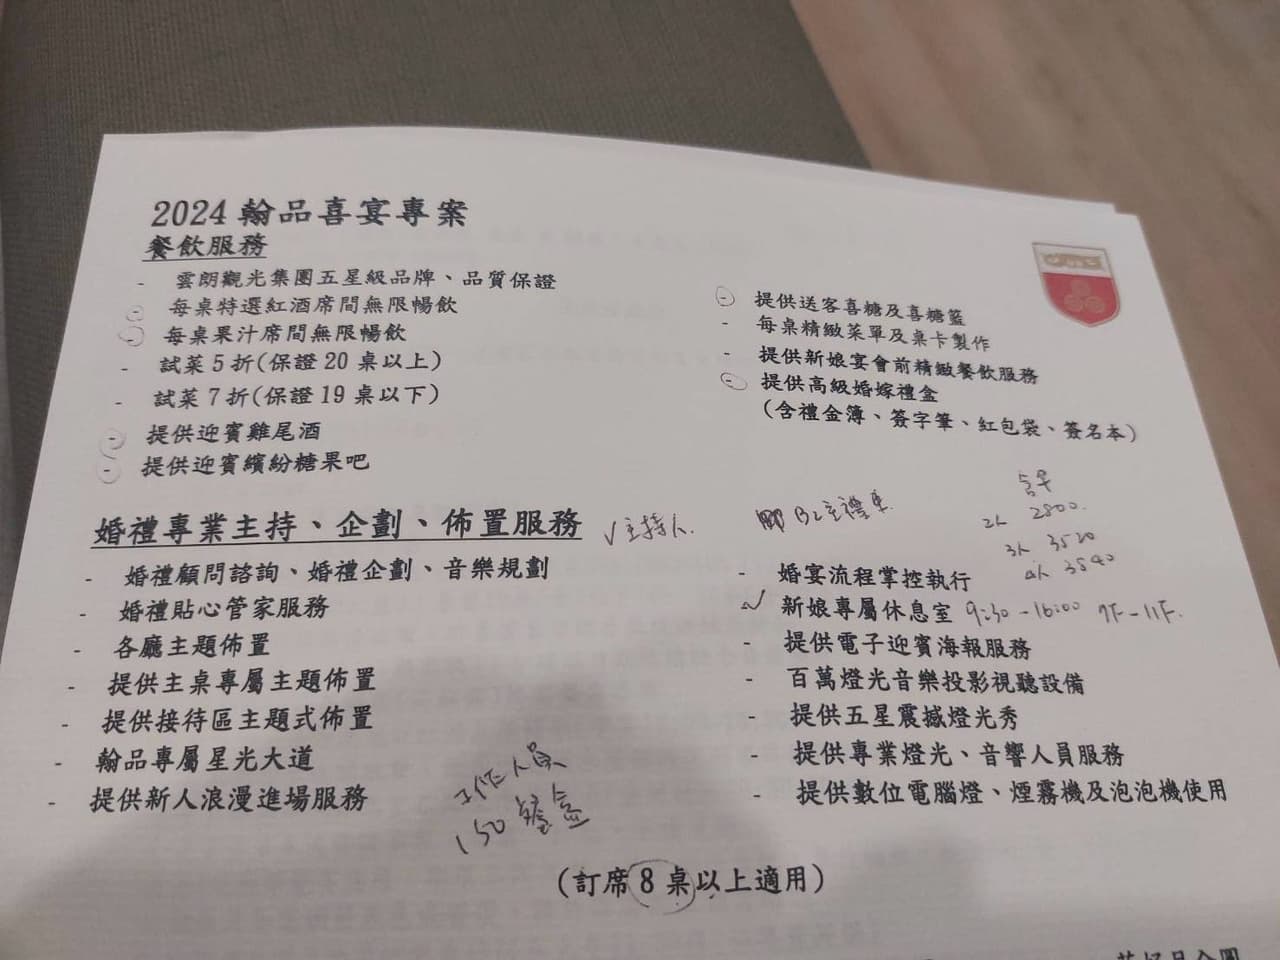 2024 翰品喜宴專案
餐飲服務
- 雲朗觀光集團五星級品牌、品質保證
- 每桌特選紅酒席間無限暢飲
- 每桌果汁席間無限暢飲
- 試菜 5 折(保證 20 桌以上)
- 試菜 7 折(保證 19 桌以下)
- 提供迎賓雞尾酒
- 提供迎賓繽紛糖果吧
- 提供送客喜糖及喜糖籃
- 每桌精緻菜單及桌卡製作
- 提供新娘宴會前精緻餐飲服務
- 提供高級婚嫁禮盒
(含禮金簿、簽字筆、紅包袋、簽名本)
婚禮專業主持、企劃、佈置服務 ✓主持人.
- 婚禮顧問諮詢、婚禮企劃、音樂規劃
- 婚禮貼心管家服務
- 各廳主題佈置
- 提供主桌專屬主題佈置
- 提供接待區主題式佈置
- 翰品專屬星光大道
- 提供新人浪漫進場服務
工作人員
150 餐盒
B2 主禮車.
含早
2人 2800.
3人 3520
4人 3540
- 婚宴流程掌控執行
✓ 新娘專屬休息室 9:30-16:00 9F-11F.
- 提供電子迎賓海報服務
- 百萬燈光音樂投影視聽設備
- 提供五星震撼燈光秀
- 提供專業燈光、音響人員服務
- 提供數位電腦燈、煙霧機及泡泡機使用
(訂席 8 桌以上適用)